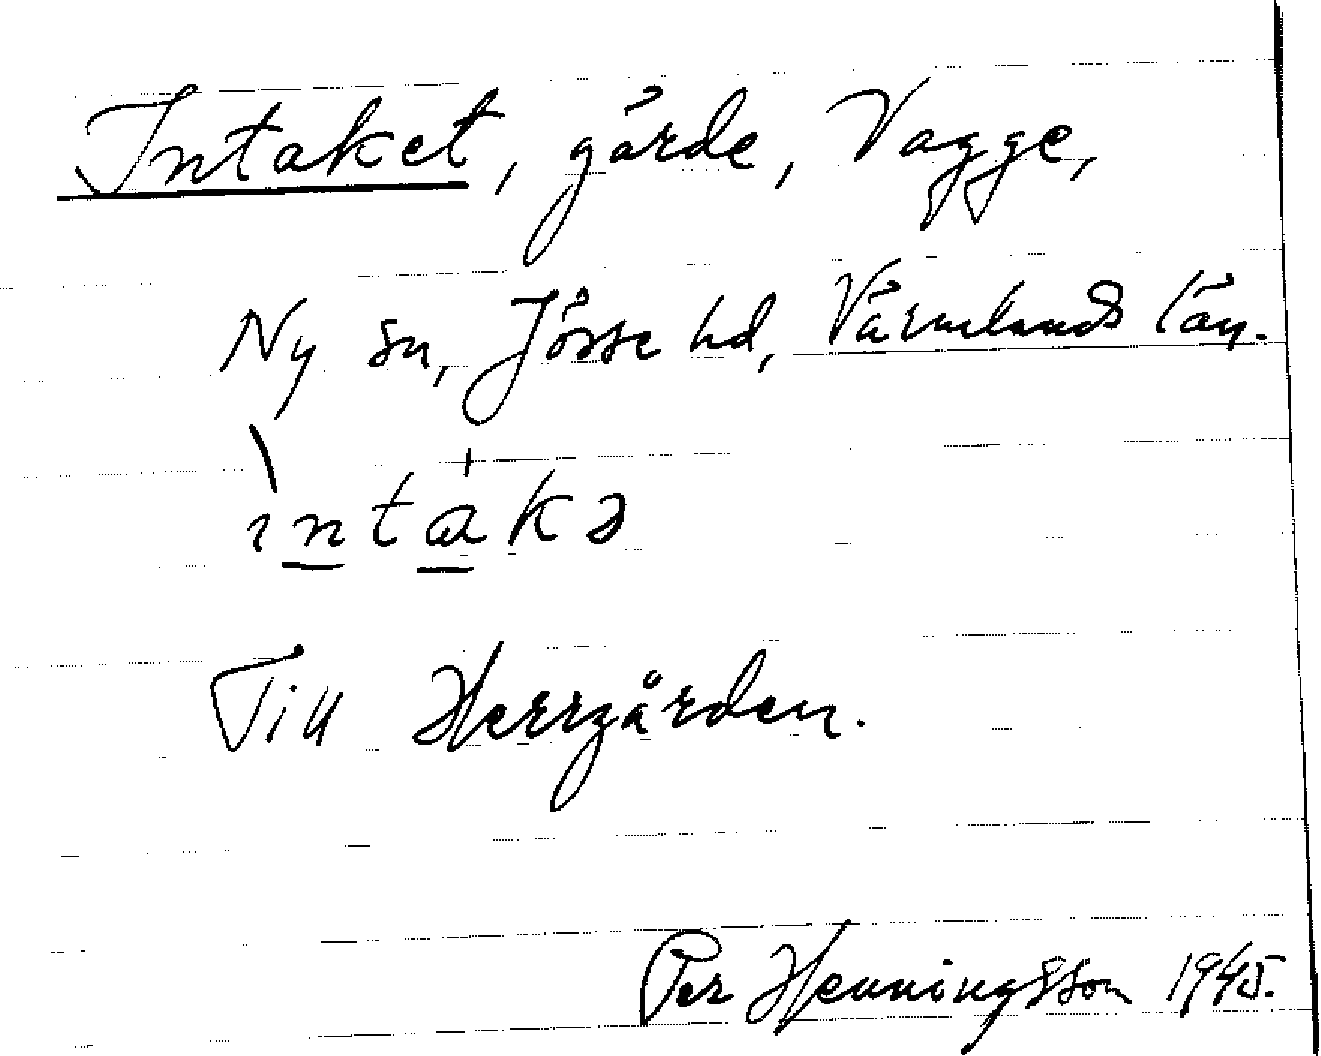 Intaket, gärde, Vagge,
Ny sn, Jösse hd, Värmlands län.
ìntákə
Till Herrgården.
Per Henningsson 1945.